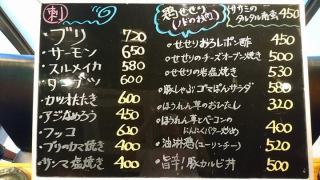 刺
・ブリ 720
・サーモン 650
・スルメイカ 580
・タコブツ 600
・カツオたたき 600
・アジなめろう 450
・フッコ 620
・ブリのカマ焼き 400
・サンマ塩焼き 400
鶏せせり(ノドのお肉)
ササミのタルタル南蛮 450
○せせりおろしポン酢 450
○せせりのチーズオーブン焼き 500
○せせりの岩塩焼き 530
・豚しゃぶゴマぽんサラダ 580
・ほうれん草のおひたし 320
・ほうれん草とベーコンのにんにくバター炒め 400
・油淋鶏(ユーリンチー) 520
・旨辛!豚カルビ丼 500